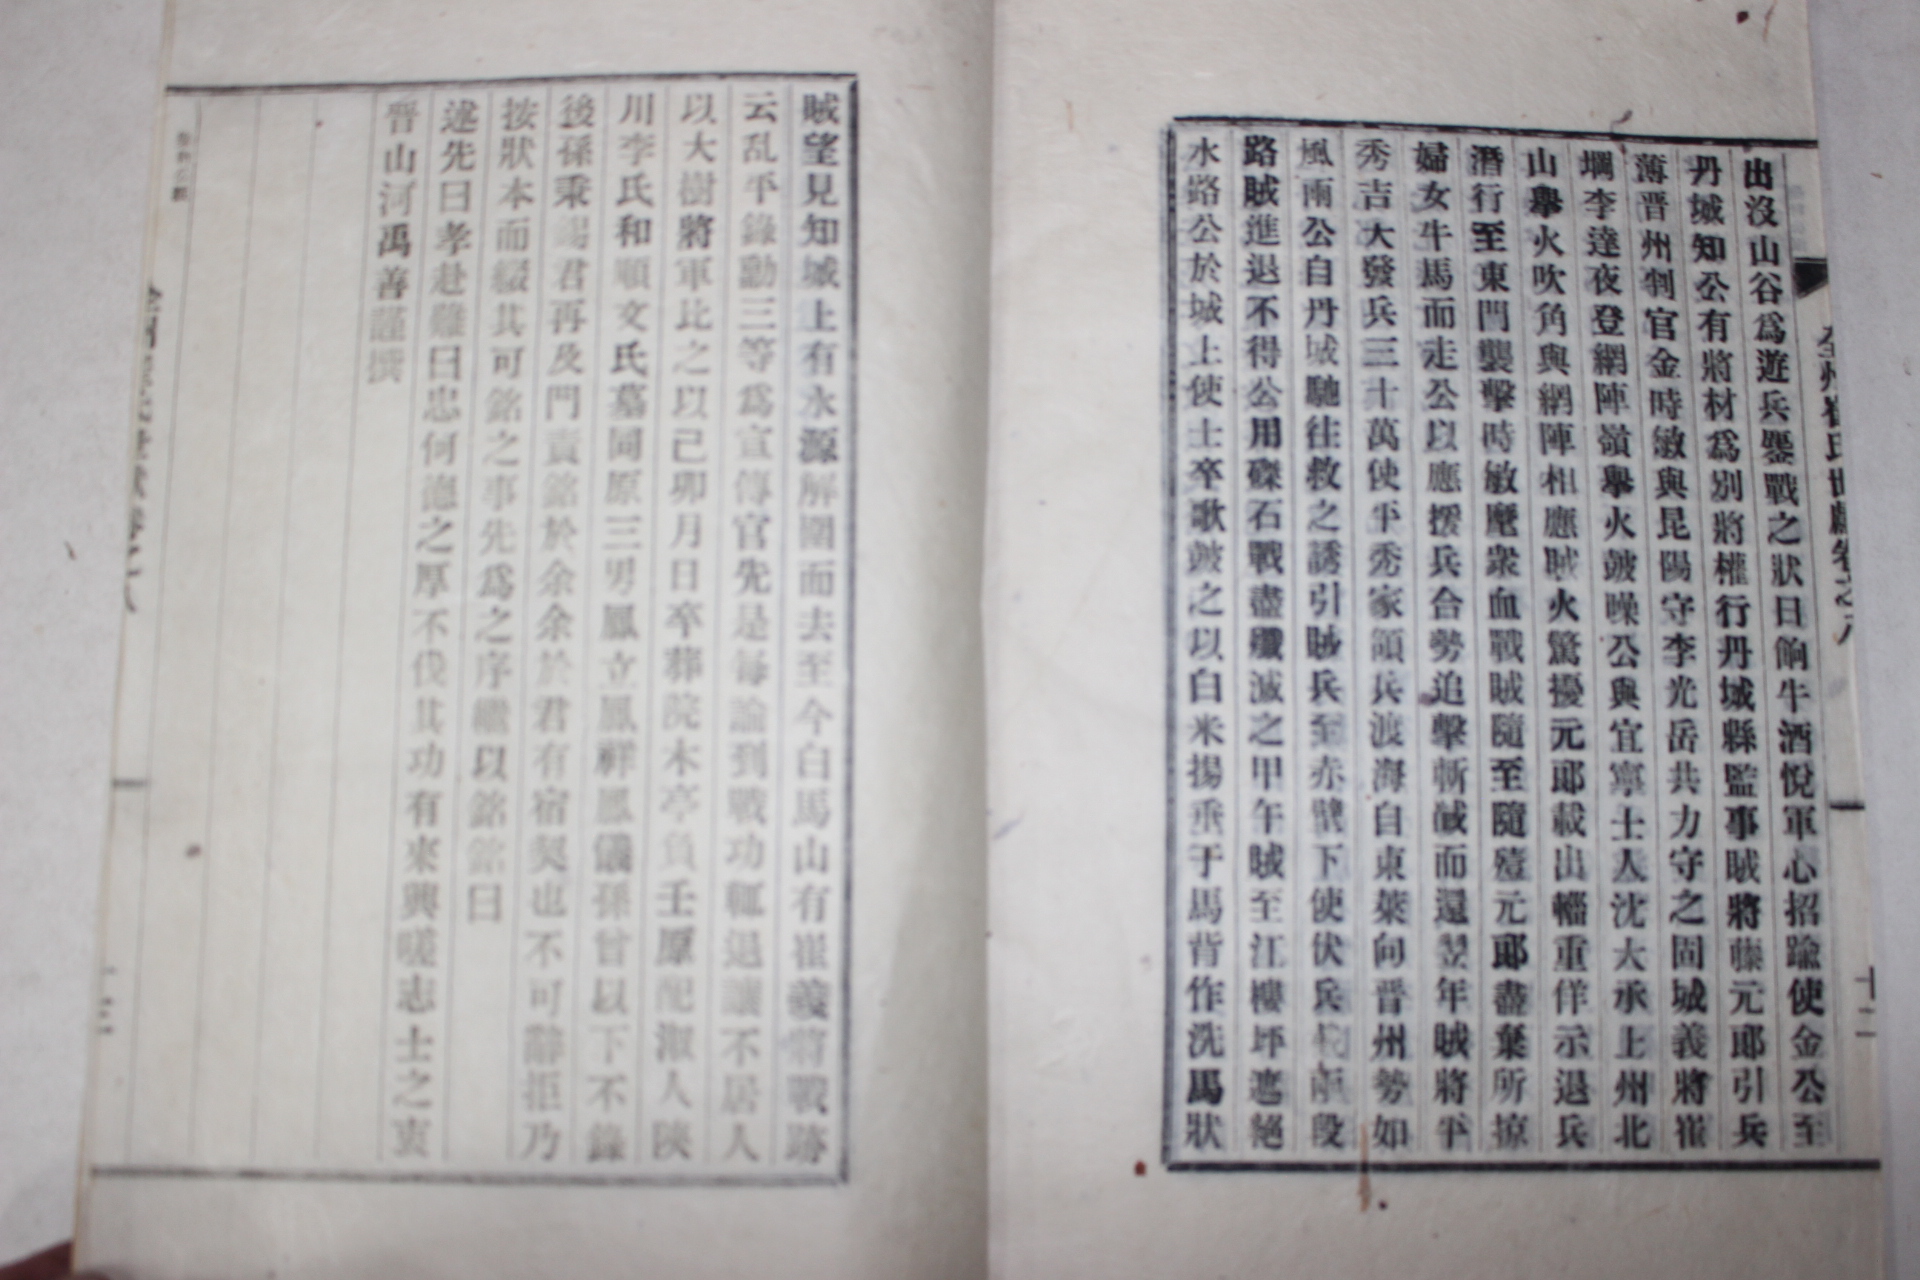 全州崔氏世獻卷之八
十二
出沒山谷爲遊兵鏖戰之狀日餉牛酒悅軍心招踰使金公至
丹城知公有將材爲別將權行丹城縣監事賊將藤元郎引兵
薄晋州判官金時敏與昆陽守李光岳共力守之固城義將崔
堈李達夜登網陣嶺擧火皷噪公與宜寧士人沈大承上州北
山擧火吹角與網陣相應賊火驚擾元郎載出輜重佯示退兵
潛行至東門襲擊時敏麾衆血戰賊隨至隨殪元郎盡棄所掠
婦女牛馬而走公以應援兵合勢追擊斬馘而還翌年賊將平
秀吉大發兵三十萬使平秀家領兵渡海自東萊向晋州勢如
風雨公自丹城馳往救之誘引賊兵至赤壁下使伏兵兩段
路賊進退不得公用磔石戰盡殲滅之甲午賊至江樓坪遮絕
水路公於城上使士卒歌皷之以白米揚垂于馬背作洗馬狀
賊望見知城上有永源解圍而去至今白馬山有崔義將戰跡
云乱平錄勳三等爲宣傳官先是每論到戰功輒退讓不居人
以大樹將軍比之以己卯月日卒葬院木亭負壬原配淑人陜
川李氏和順文氏墓同原三男鳳立鳳祥鳳儀孫曾以下不錄
後孫秉錫君再及門責銘於余余於君有宿契也不可辭拒乃
按狀本而綴其可銘之事先爲之序繼以銘銘曰
述先曰孝赴難曰忠何德之厚不伐其功有來興嗟志士之衷
晋山河禹善謹撰
全州崔氏世獻卷之八
十三